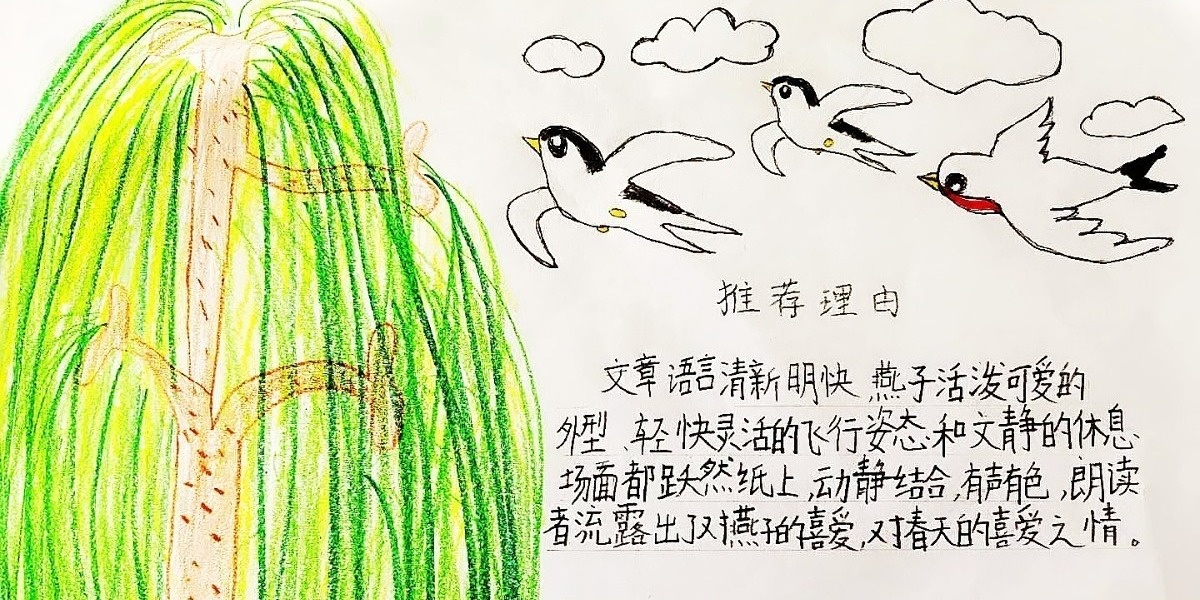 推荐理由
文章语言清新明快,燕子活泼可爱的
外型、轻快灵活的飞行姿态和文静的休息
场面都跃然纸上,动静结合,有声有色,朗读
者流露出了对燕子的喜爱,对春天的喜爱之情。